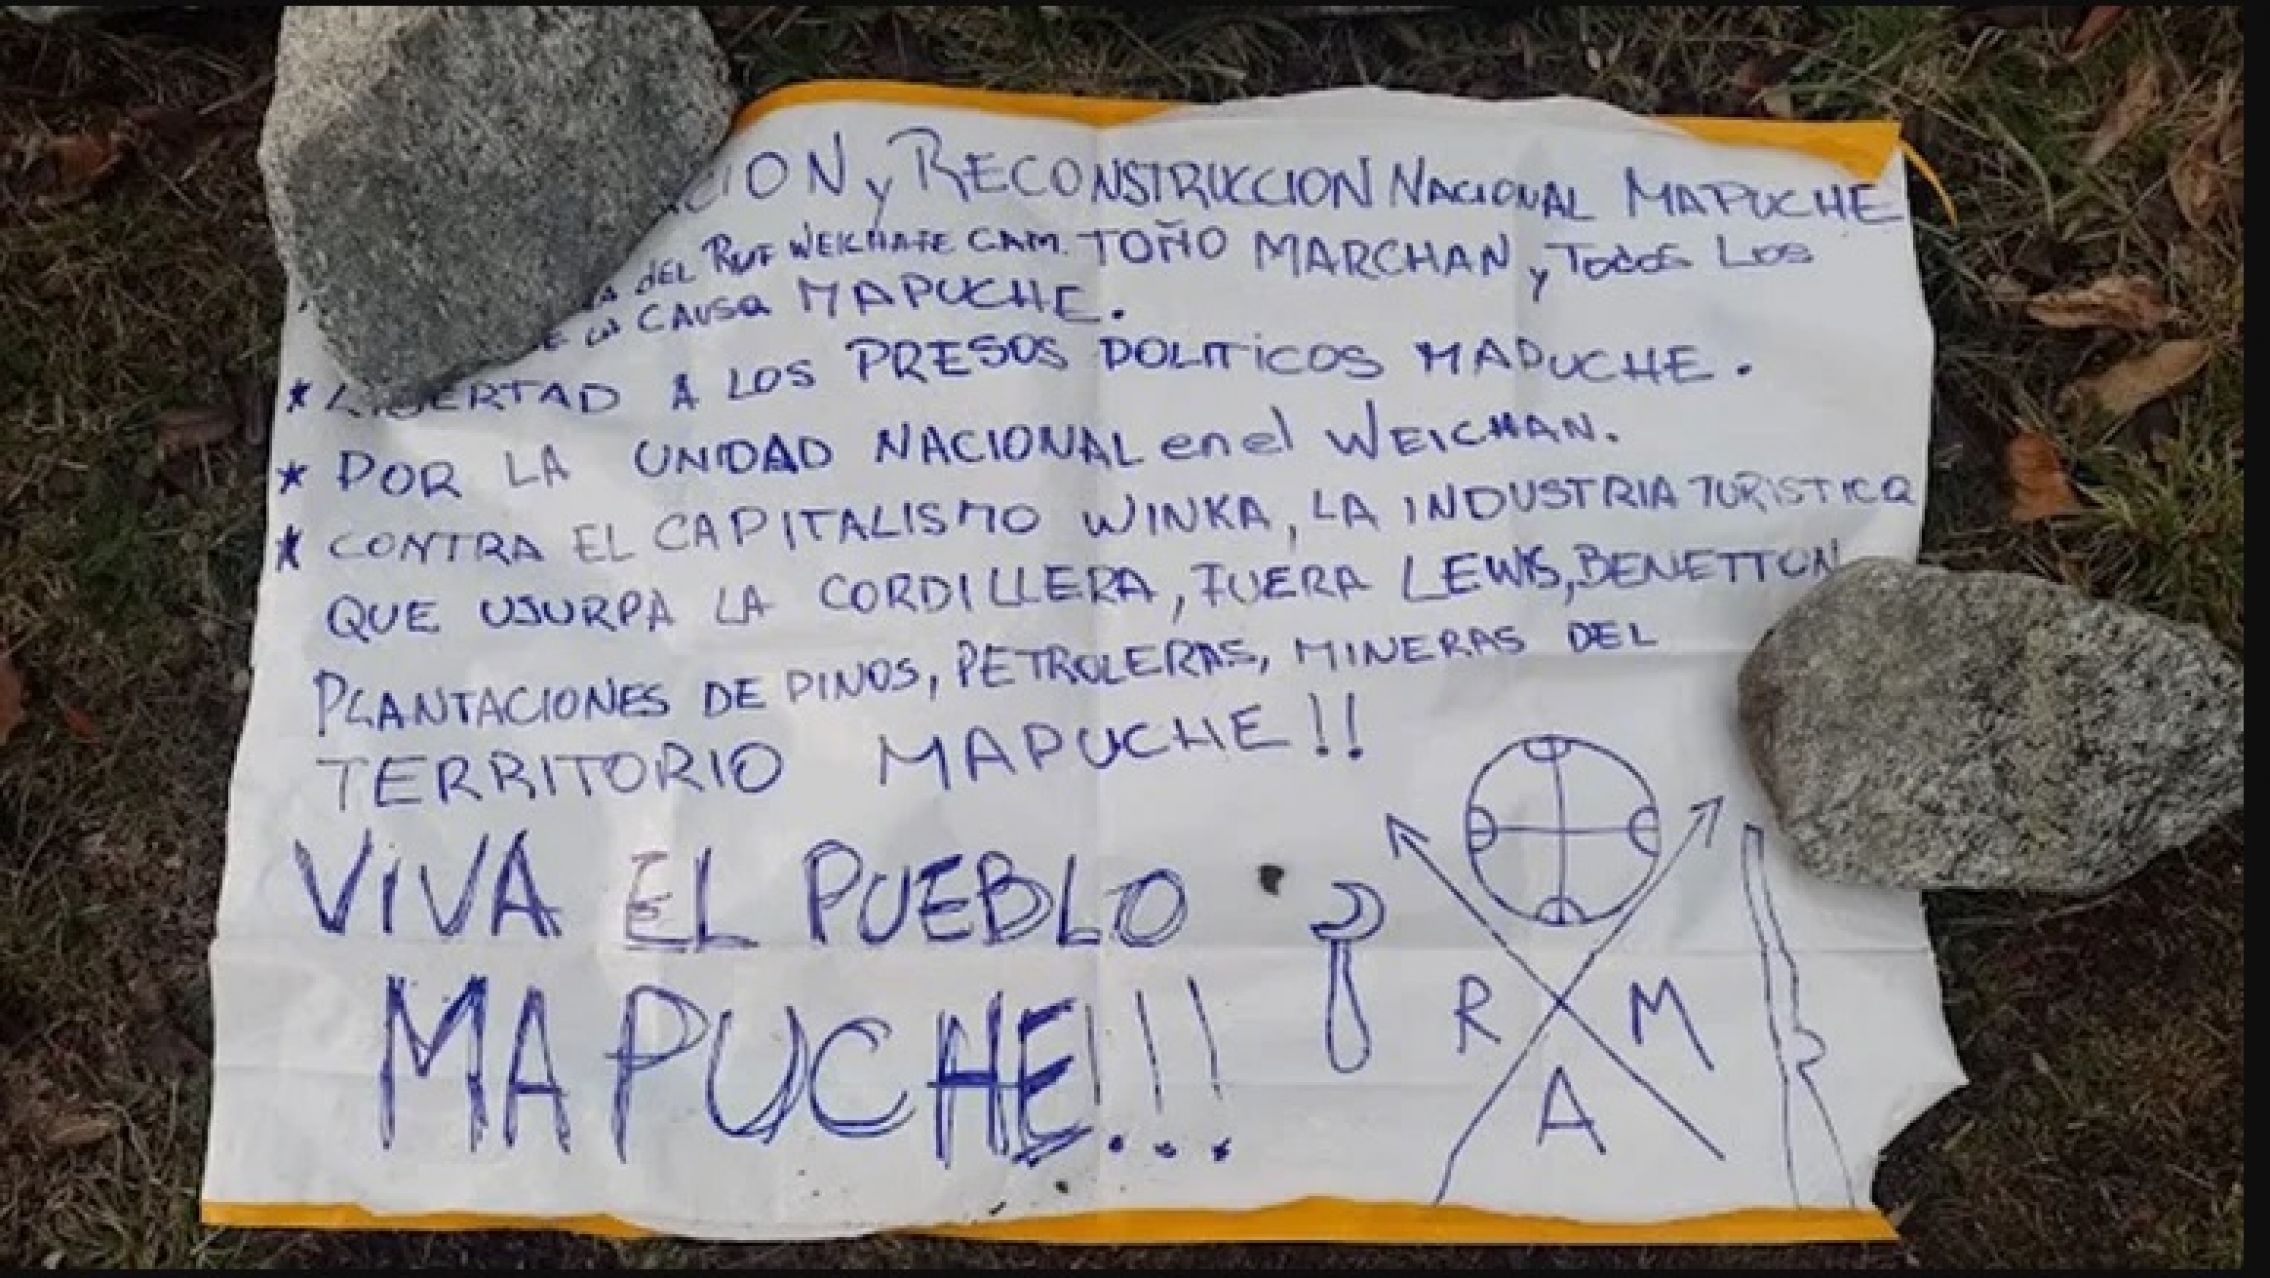 CION y RECONSTRUCCION NACIONAL MAPUCHE
DEL WEICHAFE CAM. TOÑO MARCHAN, y TODOS LOS
CAUSA MAPUCHE.
* LIBERTAD A LOS PRESOS POLITICOS MAPUCHE.
* POR LA UNIDAD NACIONAL en el WEICHAN.
* CONTRA EL CAPITALISMO WINKA, LA INDUSTRIA TURISTICA
QUE USURPA LA CORDILLERA, FUERA LEWIS, BENETTON
PLANTACIONES DE PINOS, PETROLERAS, MINERAS DEL
TERRITORIO MAPUCHE!!
VIVA EL PUEBLO
MAPUCHE!!!
R M
A